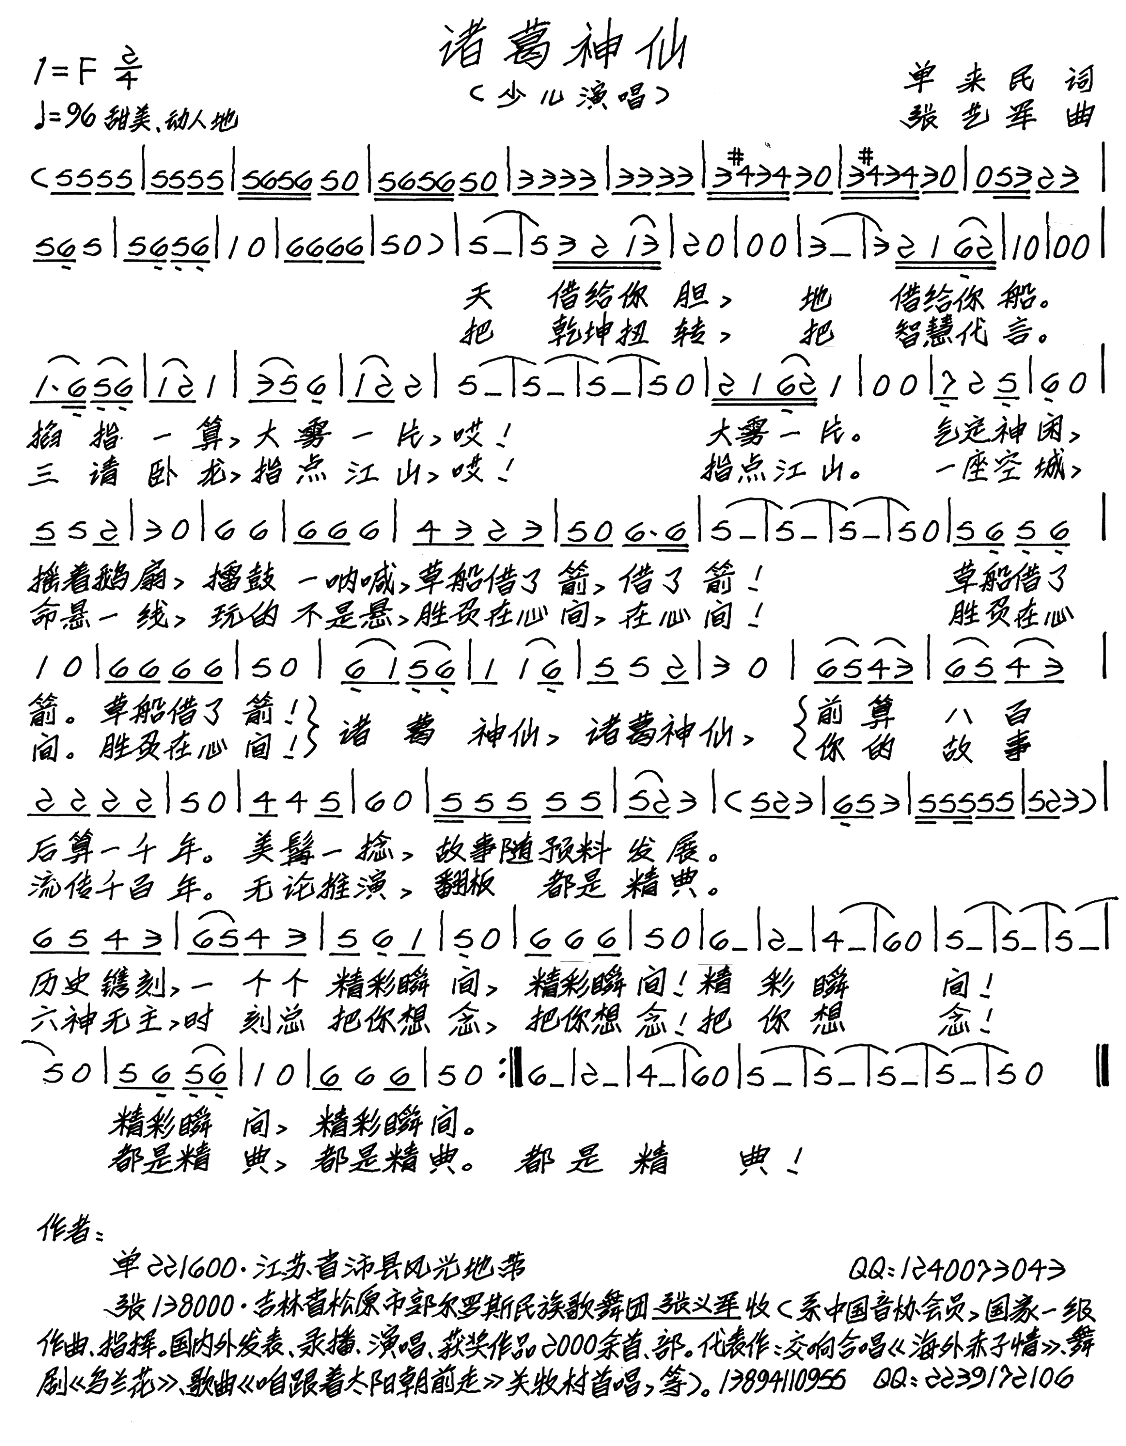 诸葛神仙
（少儿演唱）
1=F 2/4
♩=96 甜美、动人地
单来民 词
张艺军 曲
(5555|5555|565650|565650|3333|3333|3#43430|3#43430|05323|
565|5656|10|6666|50)|5–|53213|20|00|3–|32162|10|00|
天 借给你胆，地 借给你船。
把 乾坤扭转，把 智慧代言。
1·656|121|356|122|5–|5–|5–|50|21621|00|725|60|
掐指一算，大雾一片，哎！ 大雾一片。 气定神闲，
三请卧龙，指点江山，哎！ 指点江山。 一座空城，
552|30|66|666|4323|506·6|5–|5–|5–|50|5656|
摇着鹅扇，擂鼓一呐喊，草船借了箭，借了箭！ 草船借了
命悬一线，玩的不是悬，胜负在心间，在心间！ 胜负在心
10|6666|50|6156|116|552|30|6543|6543|
箭。草船借了箭！ 诸葛神仙，诸葛神仙， 前算八百
间。胜负在心间！ 你的故事
2222|50|445|60|55555|523|(523|653|55555|523)|
后算一千年。美髯一捻，故事随预料发展。
流传千百年。无论推演，翻板 都是精典。
6543|6543|561|50|666|50|6–|2–|4–|60|5–|5–|5–|
历史镌刻，一个个精彩瞬间，精彩瞬间！精彩瞬 间！
六神无主，时刻总把你想念，把你想念！把你想 念！
50|5656|10|666|50:‖6–|2–|4–|60|5–|5–|5–|5–|50‖
精彩瞬间，精彩瞬间。
都是精典，都是精典。都是精 典！
作者：
单221600·江苏省沛县风光地带 QQ：1240073043
张138000·吉林省松原市郭尔罗斯民族歌舞团张义军收（系中国音协会员，国家一级
作曲、指挥。国内外发表、录播、演唱、获奖作品2000余首、部。代表作：交响合唱《海外赤子情》、舞
剧《乌兰花》、歌曲《咱跟着太阳朝前走》关牧村首唱，等）。13894110955 QQ：2239172106